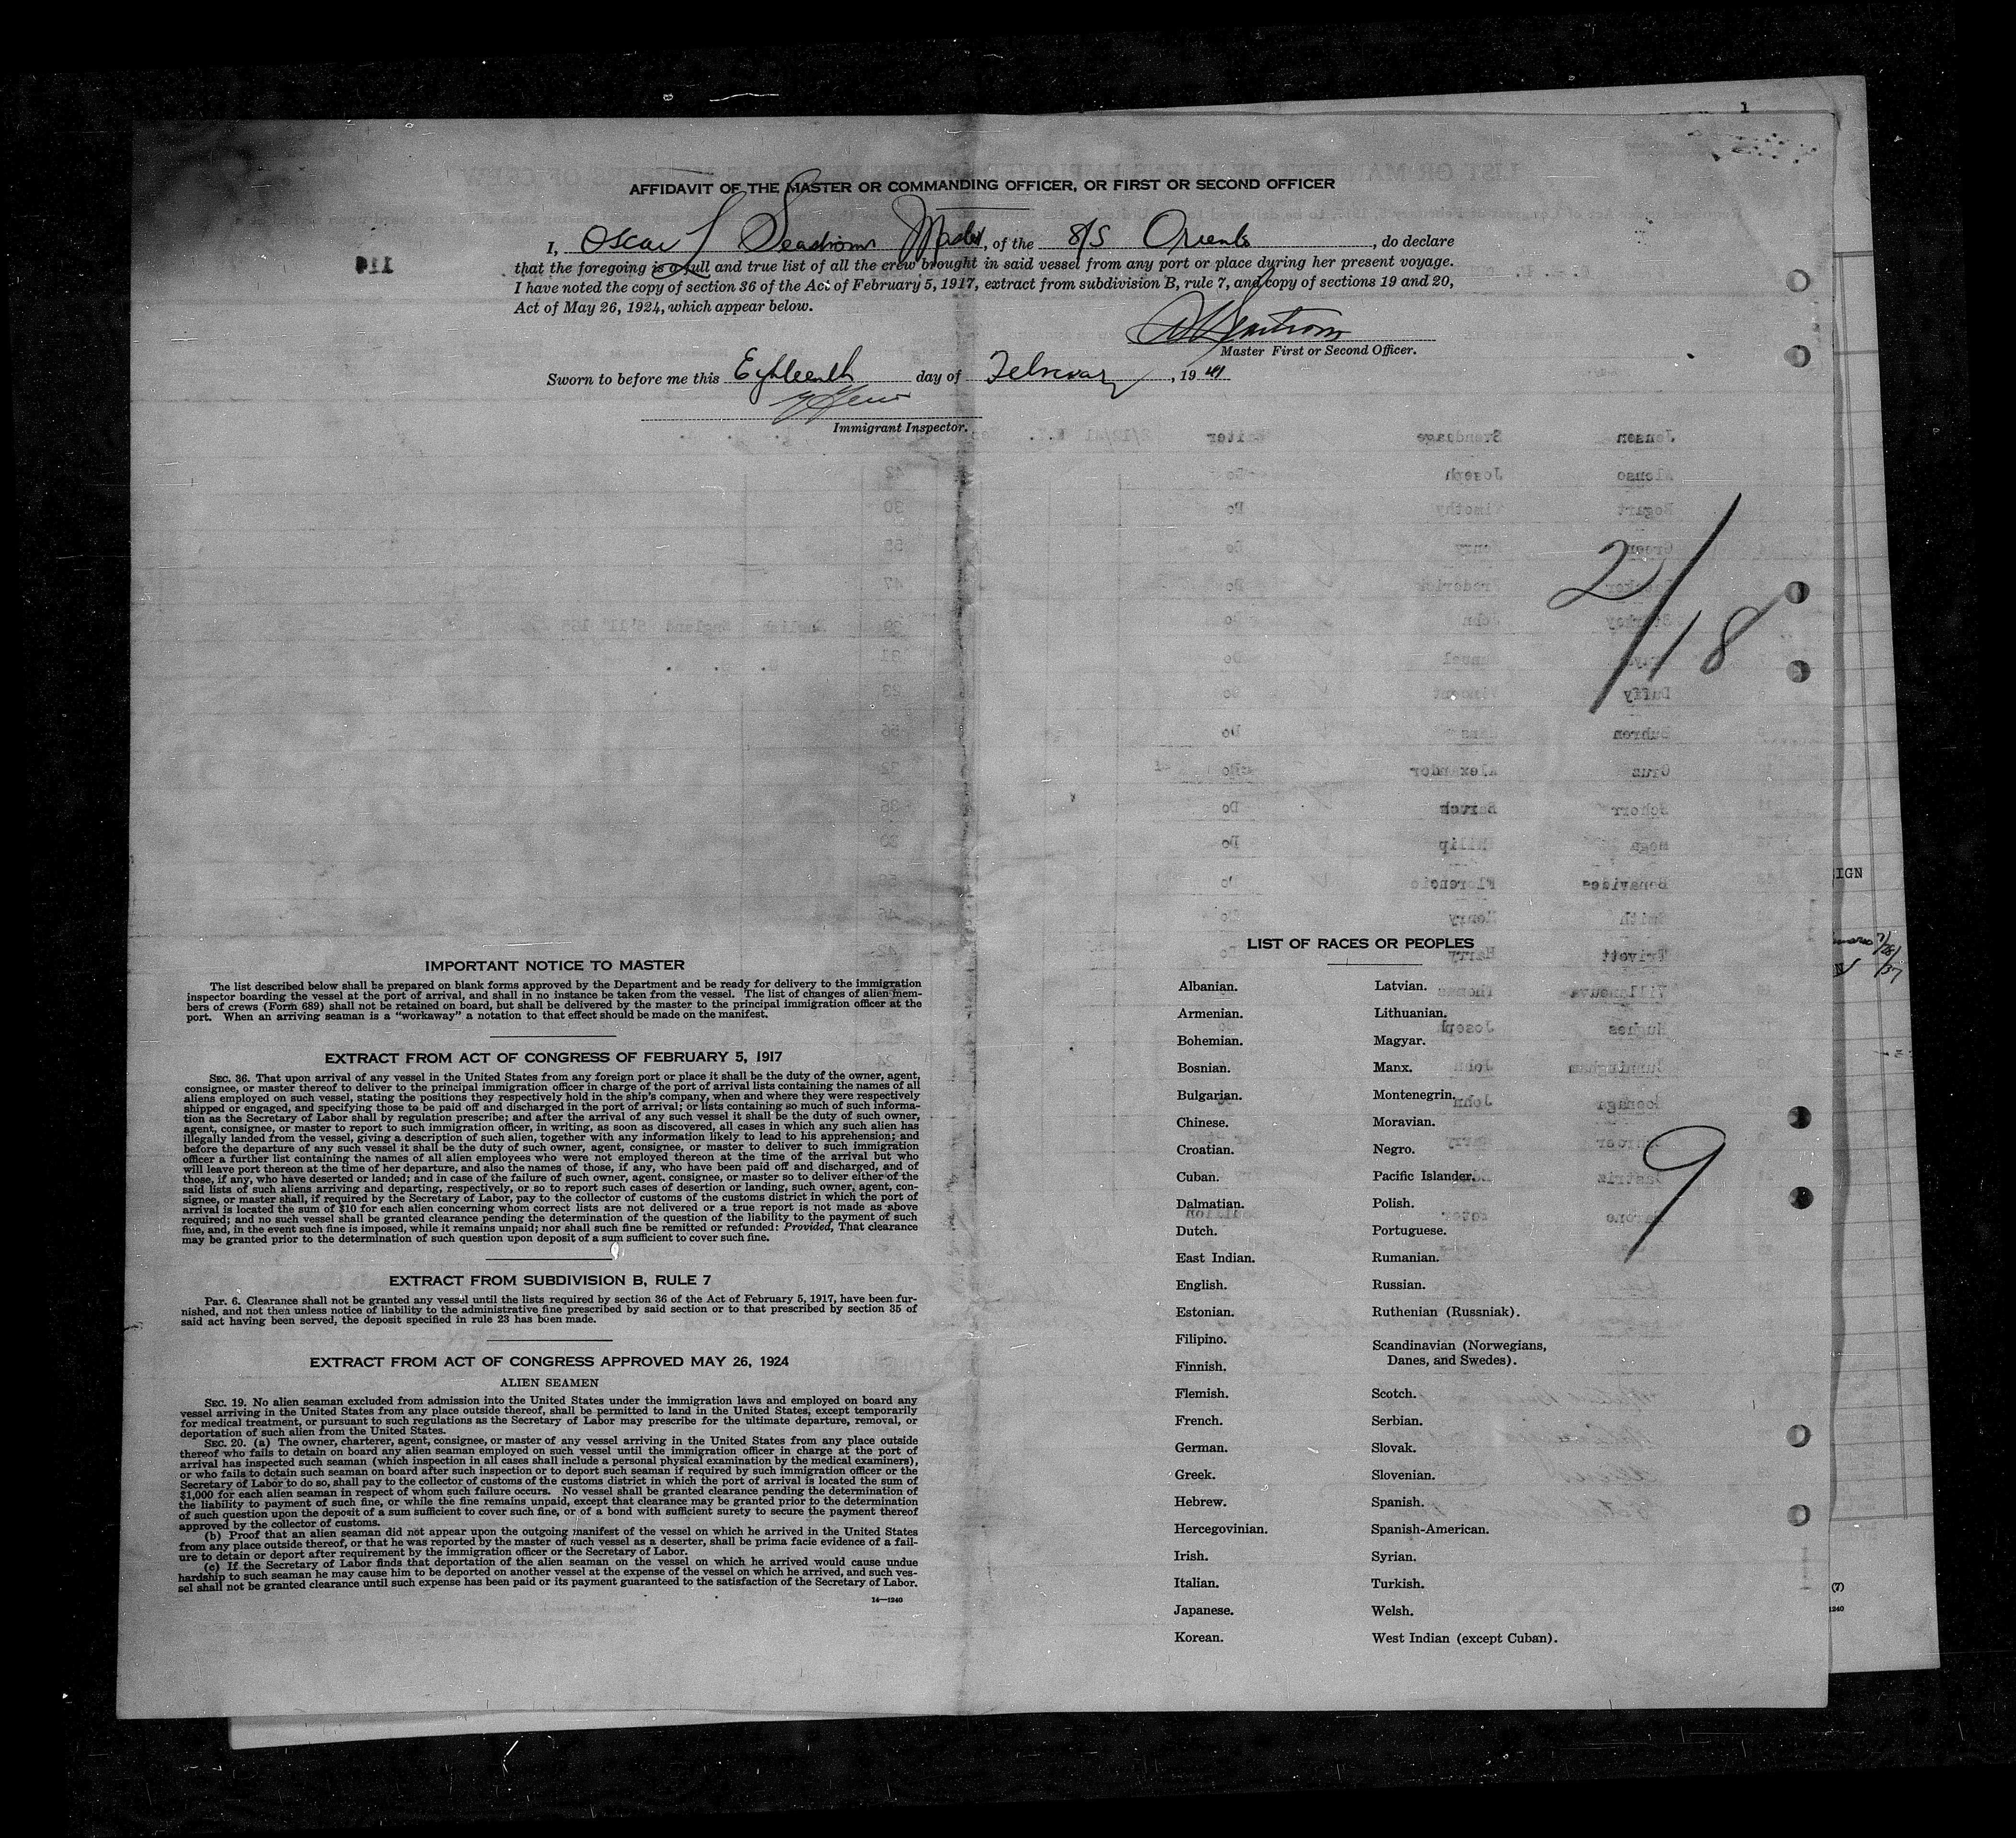 1
AFFIDAVIT OF THE MASTER OR COMMANDING OFFICER, OR FIRST OR SECOND OFFICER
I, Oscar L Seastrom Master, of the S/S Oriente, do declare
that the foregoing is a full and true list of all the crew brought in said vessel from any port or place during her present voyage.
I have noted the copy of section 36 of the Act of February 5, 1917, extract from subdivision B, rule 7, and copy of sections 19 and 20,
Act of May 26, 1924, which appear below.
Master First or Second Officer.
Sworn to before me this Eighteenth day of February, 1941
Immigrant Inspector.
2/18
9
IMPORTANT NOTICE TO MASTER
The list described below shall be prepared on blank forms approved by the Department and be ready for delivery to the immigration
inspector boarding the vessel at the port of arrival, and shall in no instance be taken from the vessel. The list of changes of alien mem-
bers of crews (Form 689) shall not be retained on board, but shall be delivered by the master to the principal immigration officer at the
port. When an arriving seaman is a “workaway” a notation to that effect should be made on the manifest.
EXTRACT FROM ACT OF CONGRESS OF FEBRUARY 5, 1917
SEC. 36. That upon arrival of any vessel in the United States from any foreign port or place it shall be the duty of the owner, agent,
consignee, or master thereof to deliver to the principal immigration officer in charge of the port of arrival lists containing the names of all
aliens employed on such vessel, stating the positions they respectively hold in the ship's company, when and where they were respectively
shipped or engaged, and specifying those to be paid off and discharged in the port of arrival; or lists containing so much of such informa-
tion as the Secretary of Labor shall by regulation prescribe; and after the arrival of any such vessel it shall be the duty of such owner,
agent, consignee, or master to report to such immigration officer, in writing, as soon as discovered, all cases in which any such alien has
illegally landed from the vessel, giving a description of such alien, together with any information likely to lead to his apprehension; and
before the departure of any such vessel it shall be the duty of such owner, agent, consignee, or master to deliver to such immigration
officer a further list containing the names of all alien employees who were not employed thereon at the time of the arrival but who
will leave port thereon at the time of her departure, and also the names of those, if any, who have been paid off and discharged, and of
those, if any, who have deserted or landed; and in case of the failure of such owner, agent, consignee, or master so to deliver either of the
said lists of such aliens arriving and departing, respectively, or so to report such cases of desertion or landing, such owner, agent, con-
signee, or master shall, if required by the Secretary of Labor, pay to the collector of customs of the customs district in which the port of
arrival is located the sum of $10 for each alien concerning whom correct lists are not delivered or a true report is not made as above
required; and no such vessel shall be granted clearance pending the determination of the question of the liability to the payment of such
fine, and, in the event such fine is imposed, while it remains unpaid; nor shall such fine be remitted or refunded: Provided, That clearance
may be granted prior to the determination of such question upon deposit of a sum sufficient to cover such fine.
EXTRACT FROM SUBDIVISION B, RULE 7
Par. 6. Clearance shall not be granted any vessel until the lists required by section 36 of the Act of February 5, 1917, have been fur-
nished, and not then unless notice of liability to the administrative fine prescribed by said section or to that prescribed by section 35 of
said act having been served, the deposit specified in rule 23 has been made.
EXTRACT FROM ACT OF CONGRESS APPROVED MAY 26, 1924
ALIEN SEAMEN
SEC. 19. No alien seaman excluded from admission into the United States under the immigration laws and employed on board any
vessel arriving in the United States from any place outside thereof, shall be permitted to land in the United States, except temporarily
for medical treatment, or pursuant to such regulations as the Secretary of Labor may prescribe for the ultimate departure, removal, or
deportation of such alien from the United States.
SEC. 20. (a) The owner, charterer, agent, consignee, or master of any vessel arriving in the United States from any place outside
thereof who fails to detain on board any alien seaman employed on such vessel until the immigration officer in charge at the port of
arrival has inspected such seaman (which inspection in all cases shall include a personal physical examination by the medical examiners),
or who fails to detain such seaman on board after such inspection or to deport such seaman if required by such immigration officer or the
Secretary of Labor to do so, shall pay to the collector of customs of the customs district in which the port of arrival is located the sum of
$1,000 for each alien seaman in respect of whom such failure occurs. No vessel shall be granted clearance pending the determination of
the liability to payment of such fine, or while the fine remains unpaid, except that clearance may be granted prior to the determination
of such question upon the deposit of a sum sufficient to cover such fine, or of a bond with sufficient surety to secure the payment thereof
approved by the collector of customs.
(b) Proof that an alien seaman did not appear upon the outgoing manifest of the vessel on which he arrived in the United States
from any place outside thereof, or that he was reported by the master of such vessel as a deserter, shall be prima facie evidence of a fail-
ure to detain or deport after requirement by the immigration officer or the Secretary of Labor.
(c) If the Secretary of Labor finds that deportation of the alien seaman on the vessel on which he arrived would cause undue
hardship to such seaman he may cause him to be deported on another vessel at the expense of the vessel on which he arrived, and such ves-
sel shall not be granted clearance until such expense has been paid or its payment guaranteed to the satisfaction of the Secretary of Labor.
14—1240
LIST OF RACES OR PEOPLES
Albanian.
Armenian.
Bohemian.
Bosnian.
Bulgarian.
Chinese.
Croatian.
Cuban.
Dalmatian.
Dutch.
East Indian.
English.
Estonian.
Filipino.
Finnish.
Flemish.
French.
German.
Greek.
Hebrew.
Hercegovinian.
Irish.
Italian.
Japanese.
Korean.
Latvian.
Lithuanian.
Magyar.
Manx.
Montenegrin.
Moravian.
Negro.
Pacific Islander.
Polish.
Portuguese.
Rumanian.
Russian.
Ruthenian (Russniak).
Scandinavian (Norwegians,
Danes, and Swedes).
Scotch.
Serbian.
Slovak.
Slovenian.
Spanish.
Spanish-American.
Syrian.
Turkish.
Welsh.
West Indian (except Cuban).
IGN
(7)
1240